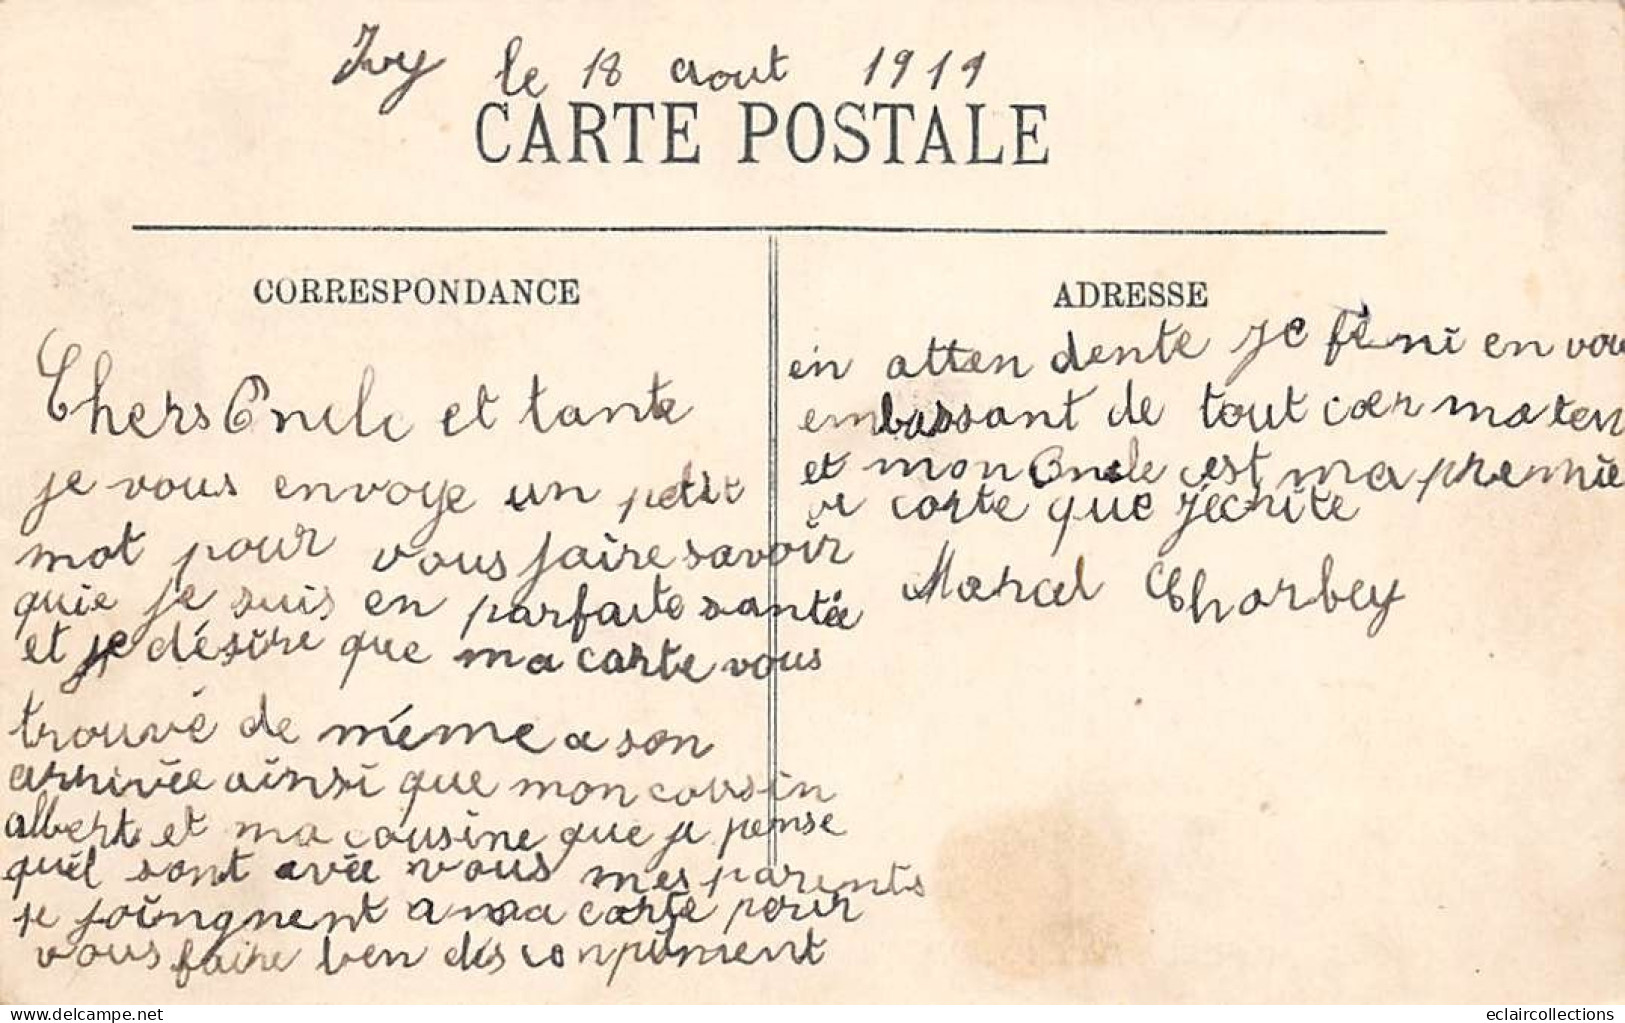 Ivy le 18 aout 1911
CARTE POSTALE
CORRESPONDANCE
Chers Oncle et tante
je vous envoye un petit
mot pour vous faire savoir
quie je suis en parfaite santée
et je désire que ma carte vous
trouvé de méme a son
arrivée ainsi que mon cousin
albert et ma cousine que je pense
quél sont avée vous mes parents
se joingnent a ma carte pour
vous faire ben des conpliment
ADRESSE
en atten dente je fi ni en vou
embassant de tout cœr ma ten
et mon Oncle cest ma premie
carte que jécrite
Marcel Charbey
delcampe.net
eclaircollections